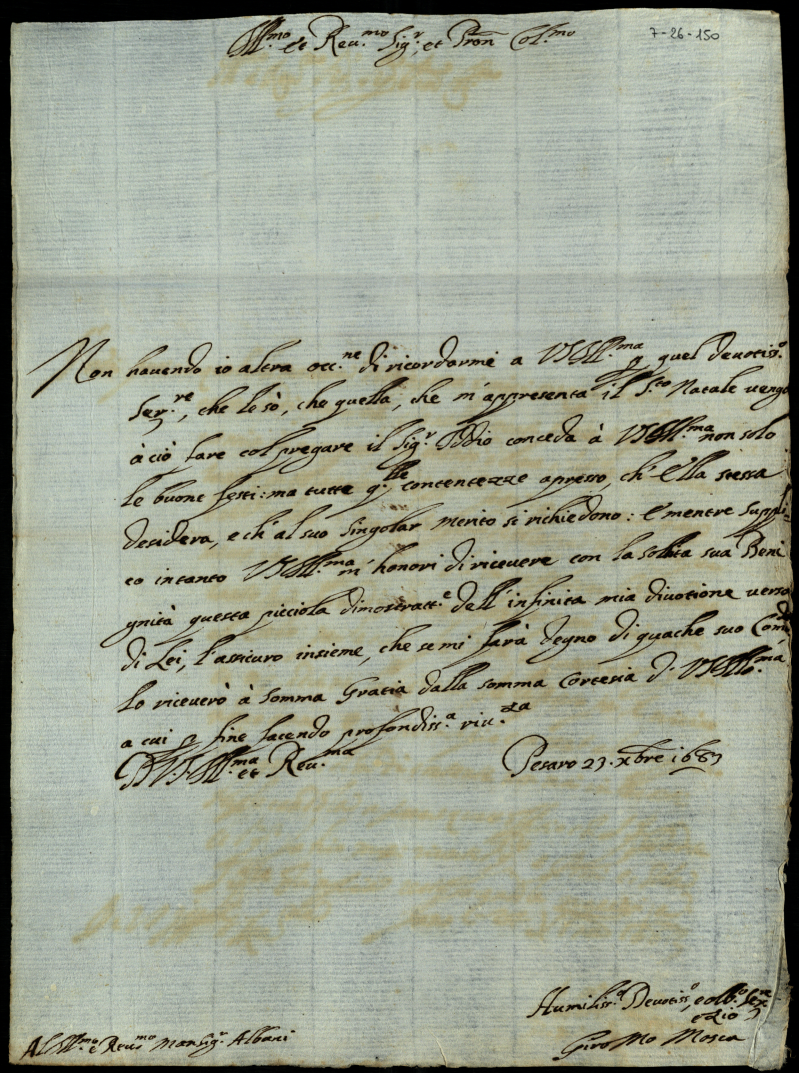 Ill.mo et Reu.mo Sig.r, et Pron Col.mo
7-26-150
Non hauendo io altra occ.ne di ricordarmi a VSIll.ma p quel deuotiss.o
Ser.re, che le sò, che quella, che m'appresenta il S.to Natale uengo
à ciò fare col pregare il Sig.r Iddio conceda à VSIll.ma non solo
le buone feste: ma tutte q.lle contentezze apresso, ch'Ella stessa
desidera, e ch'al suo singolar merito si richiedono: E mentre suppli-
co intanto VSIll.ma m'honori di riceuere con la solita sua Beni
gnità questa picciola dimostratt.e dell'infinita mia diuotione uerso
di Lei, l'assicuro insieme, che se mi farà degno di quache suo Com.do
lo riceuerò à somma Gratia dalla somma Cortesia di VSIll.ma
a cui p fine facendo profondiss.a riu.za
D V.S.Ill.ma et Reu.ma
Pesaro 23. Xbre 1683
Humiliss.o Deuotiss.o, e obb.o Ser.re
e Zio
Giro Mo Mosca
Al Ill.mo e Reu.mo Monsig.r Albani